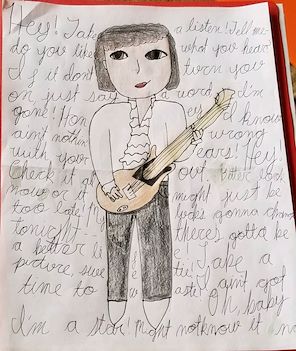 Hey! Take a listen! Tell me
do you like what you hear
If it don't turn you
on just say a word I'm
gone! Hon I know
ain't nothin wrong
with your ears! Hey!
Check it out better look
now or it might just be
too late! My luck's gonna change
tonight there's gotta be
a better li Take a
picture, swe I ain't got
time to wa Oh, baby
I'm a star! Might not know it no